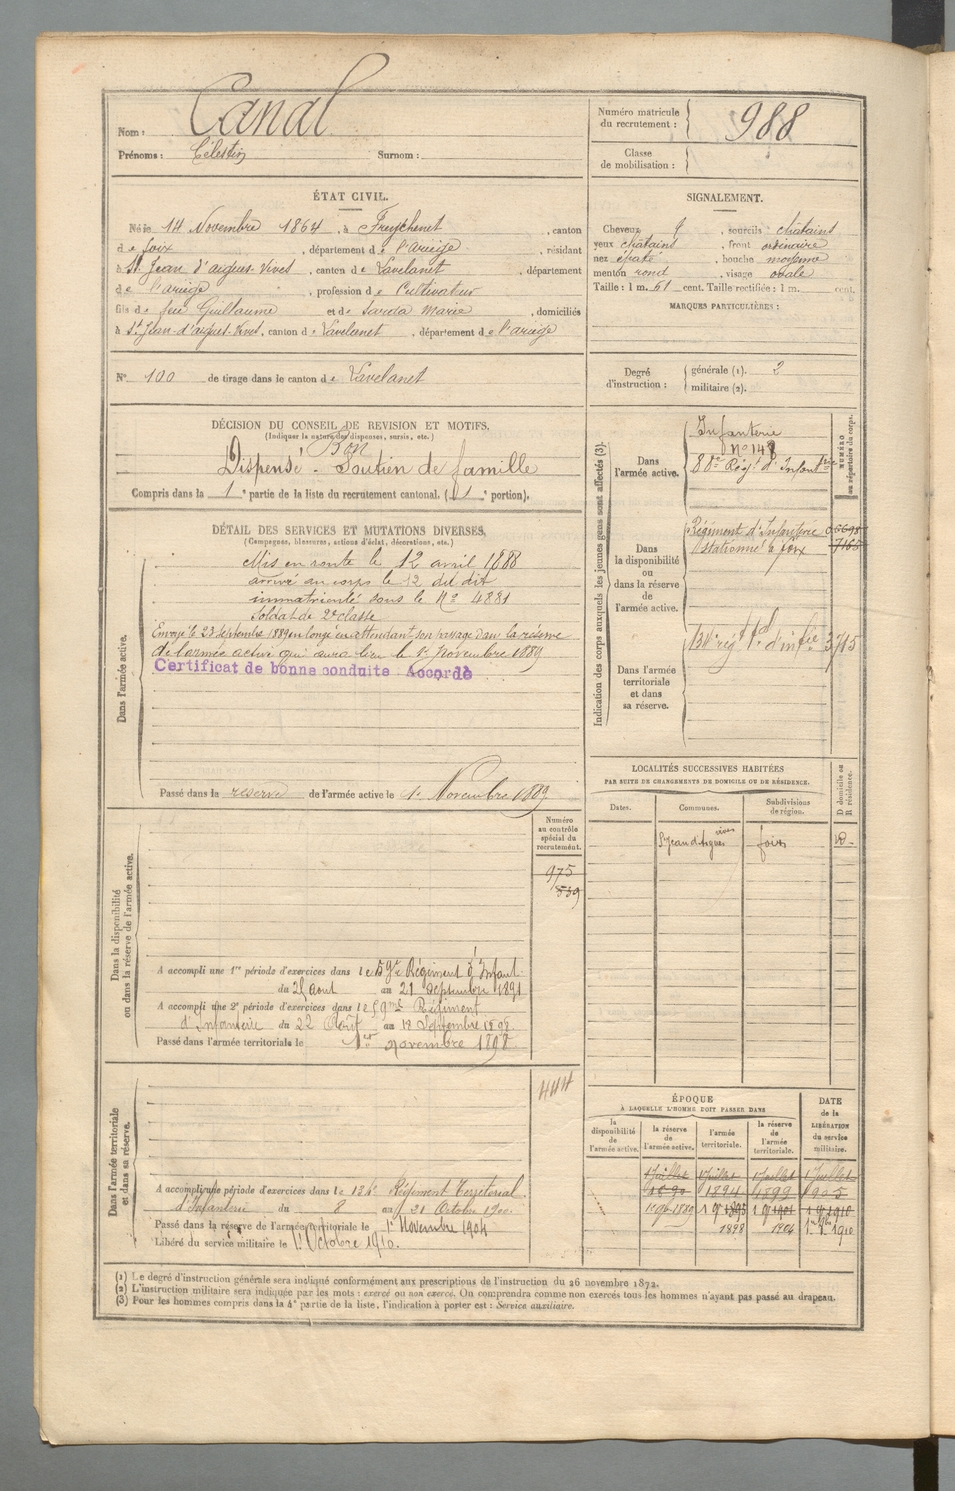 Nom : Canal
Prénoms : Célestin Surnom :
Numéro matricule
du recrutement : 988
Classe
de mobilisation :
ÉTAT CIVIL.
Né le 14 Novembre 1864, à Freychenet, canton
de foix, département de l'ariège, résidant
à St Jean d'aigues-Vives, canton de Lavelanet, département
de l'ariège, profession de Cultivateur
fils de feu Guillaume et de Sarda Marie, domiciliés
à St Jean-d'aigues-Vives, canton de Lavelanet, département de l'ariège
N° 100 de tirage dans le canton de Lavelanet
SIGNALEMENT.
Cheveux, sourcils châtains
yeux châtains, front ordinaire
nez épaté, bouche moyenne
menton rond, visage ovale
Taille : 1 m. 61 cent. Taille rectifiée : 1 m. cent.
MARQUES PARTICULIÈRES :
Degré
d'instruction :
générale (1). 2
militaire (2).
DÉCISION DU CONSEIL DE REVISION ET MOTIFS.
(Indiquer la nature des dispenses, sursis, etc.)
Bon
Dispensé - Soutien de famille
Compris dans la 1e partie de la liste du recrutement cantonal. (1e portion).
DÉTAIL DES SERVICES ET MUTATIONS DIVERSES.
(Campagnes, blessures, actions d'éclat, décorations, etc.)
Dans l'armée active.
Mis en route le 12 avril 1888
arrivé au corps le 12 du dit
immatriculé sous le No 4881
Soldat de 2e classe
Envoyé le 23 septembre 1889 en congé en attendant son passage dans la réserve
de l'armée active qui aura lieu le 1er novembre 1889
Certificat de bonne conduite Accordé
Passé dans la réserve de l'armée active le 1er Novembre 1889
Indication des corps auxquels les jeunes gens sont affectés (3).
NUMÉRO
au répertoire du corps.
Dans
l'armée active.
Infanterie
No 148
88e Régt d'Infanterie
Dans
la disponibilité
ou
dans la réserve
de
l'armée active.
Régiment d'Infanterie
stationné à foix
7165
Dans l'armée
territoriale
et dans
sa réserve.
134e régt tal d'infie 3715
LOCALITÉS SUCCESSIVES HABITÉES
PAR SUITE DE CHANGEMENTS DE DOMICILE OU DE RÉSIDENCE.
Dates. Communes. Subdivisions
de région.
D domicile ou
R résidence.
St Jean d'Aigues vives foix D.
Dans la disponibilité
ou dans la réserve de l'armée active.
Numéro
au contrôle
spécial du
recrutement.
975
559
A accompli une 1re période d'exercices dans le 59e Régiment d'Infant
du 25 août au 21 septembre 1891
A accompli une 2e période d'exercices dans le 59me Régiment
d'Infanterie du 22 Août au 18 Septembre 1895
Passé dans l'armée territoriale le 1er Novembre 1898
Dans l'armée territoriale
et dans sa réserve.
444
A accompli une période d'exercices dans le 134e Régiment Territorial
d'Infanterie du 8 au 21 Octobre 1900.
Passé dans la réserve de l'armée territoriale le 1er Novembre 1904
Libéré du service militaire le 1er Octobre 1910.
ÉPOQUE
À LAQUELLE L'HOMME DOIT PASSER DANS
la
disponibilité
de
l'armée active.
la réserve
de
l'armée active.
l'armée
territoriale.
la réserve
de
l'armée
territoriale.
DATE
de la
LIBÉRATION
du service
militaire.
1 Juillet 1 Juillet 1 Juillet 1 Juillet
1890 1894 1899 1905
1 9bre 1889 1895 1901 1910
1898 1904 1910
(1) Le degré d'instruction générale sera indiqué conformément aux prescriptions de l'instruction du 26 novembre 1872.
(2) L'instruction militaire sera indiquée par les mots : exercé ou non exercé. On comprendra comme non exercés tous les hommes n'ayant pas passé au drapeau.
(3) Pour les hommes compris dans la 4e partie de la liste, l'indication à porter est : Service auxiliaire.